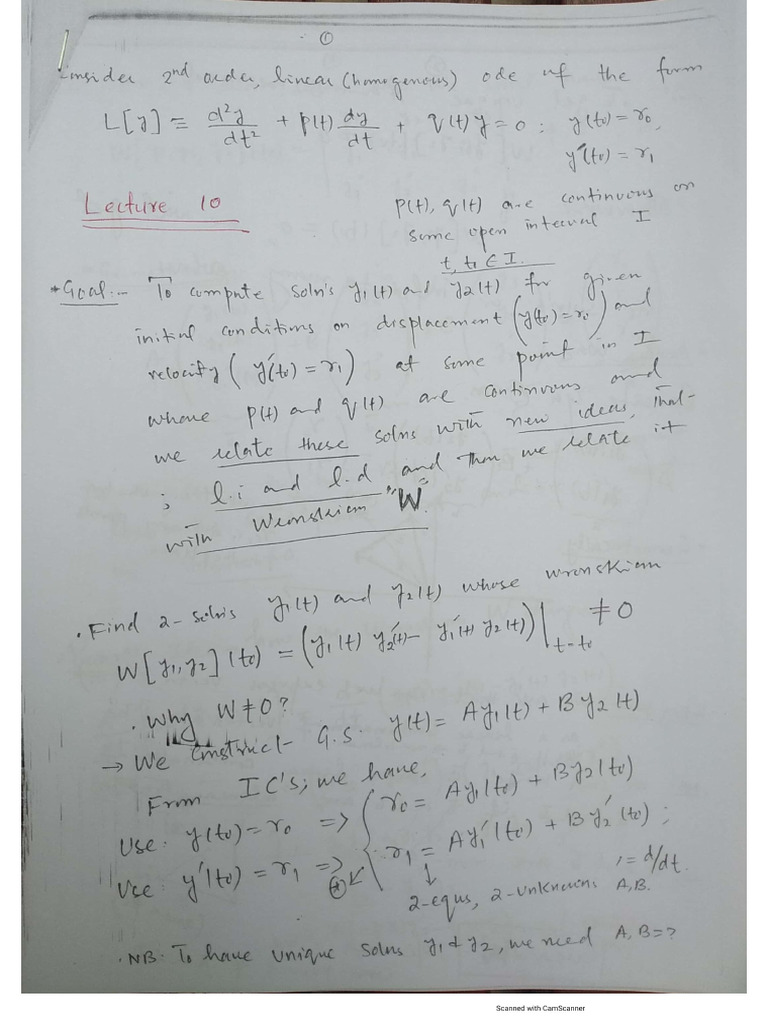 ①
Consider 2nd order, linear (homogenous) ode of the form
L[y] ≡ d²y/dt² + p(t) dy/dt + q(t) y = 0 : y(t₀) = r₀,
y'(t₀) = r₁
Lecture 10
p(t), q(t) are continuous on
some open interval I
t, t₀ ∈ I.
* Goal:- To compute soln's y₁(t) and y₂(t) for given
initial conditions on displacement (y(t₀) = r₀) and
velocity (y'(t₀) = r₁) at some point in I
whose p(t) and q(t) are continuous and
we relate these solns with new ideas, that
; l.i and l.d and then we relate it
with Wronskian "W".
. Find 2-soln's y₁(t) and y₂(t) whose wronskian
W[y₁, y₂](t₀) = (y₁(t) y₂'(t) - y₁'(t) y₂(t))|t=t₀ ≠ 0
. Why W ≠ 0?
→ We construct G.S. y(t) = A y₁(t) + B y₂(t)
From IC's; we have,
Use: y(t₀) = r₀ => { r₀ = A y₁(t₀) + B y₂(t₀)
Use: y'(t₀) = r₁ => { r₁ = A y₁'(t₀) + B y₂'(t₀) ;
⊛ ↙ ↓ ' = d/dt.
2-equs, 2-unknowns A, B.
. NB: To have unique solns y₁ & y₂, we need A, B = ?
Scanned with CamScanner